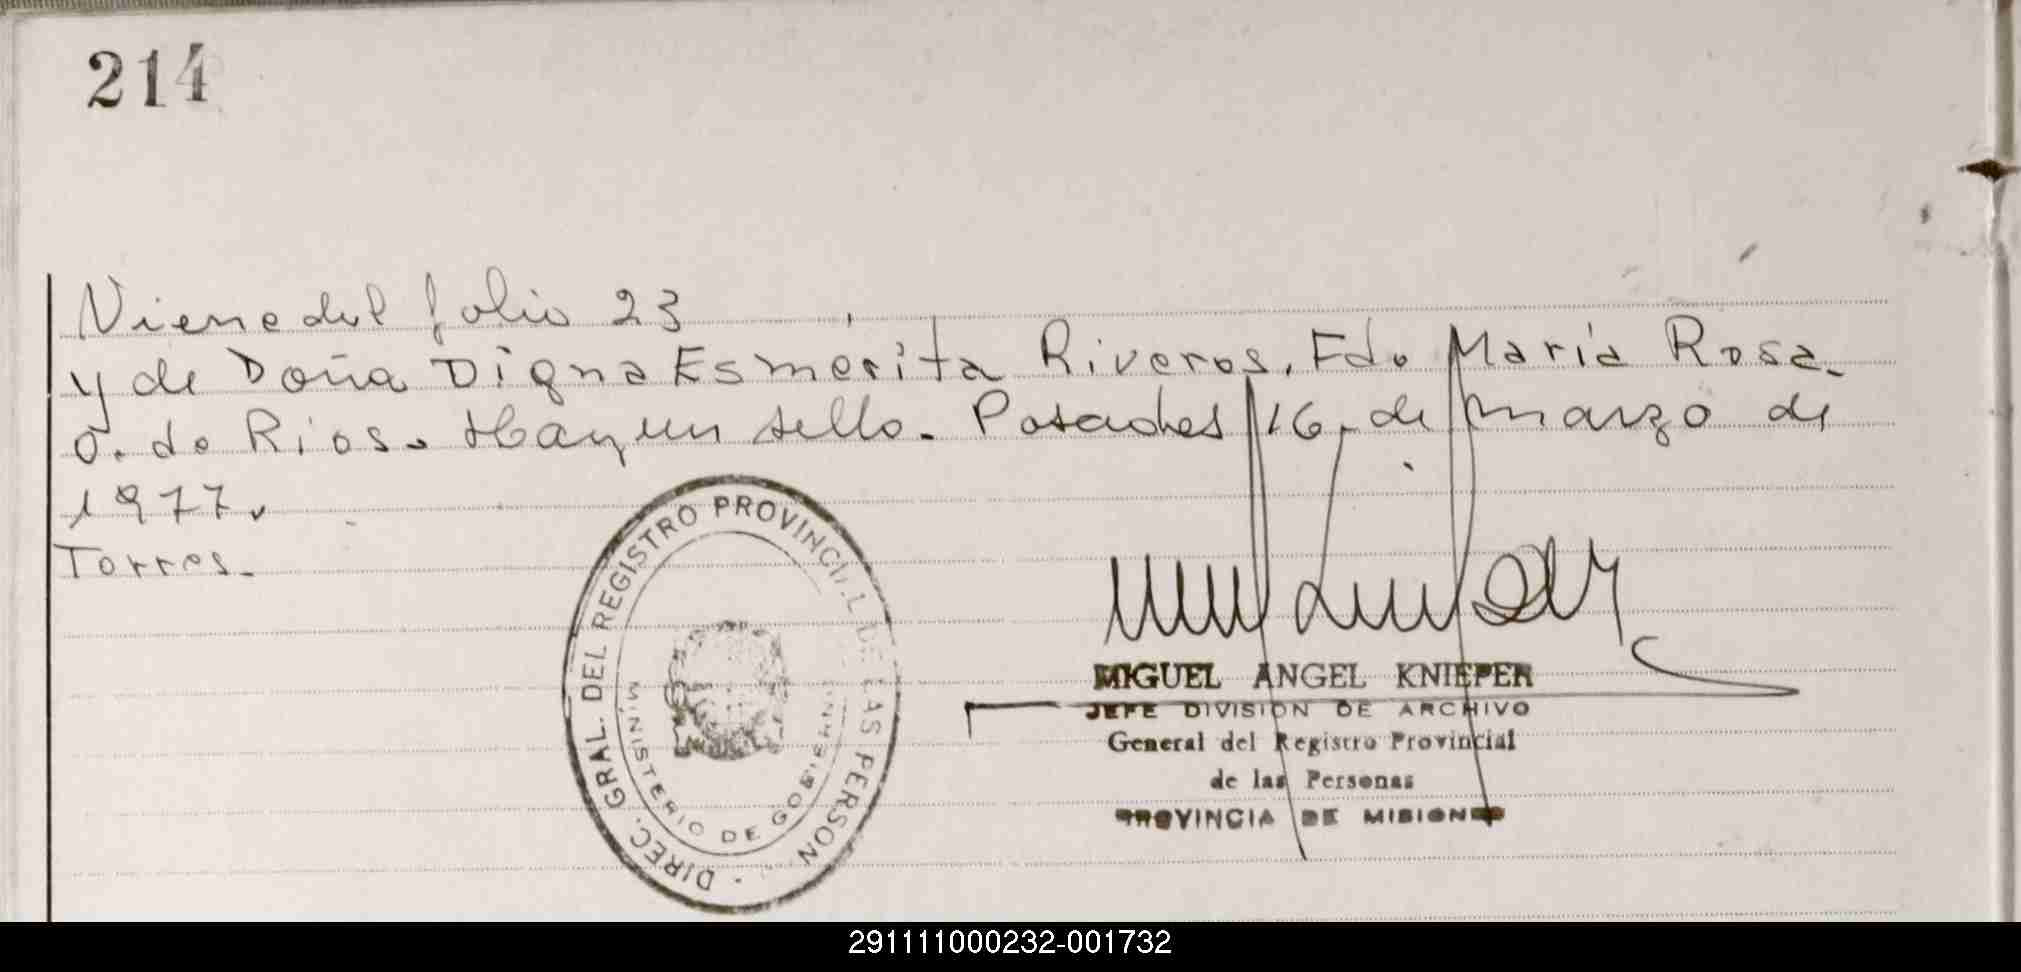 214
Viene del folio 23
y de Doña Digna Esmerita Riveros. Fdo María Rosa
O. de Rios. Hay un sello. Posadas 16 de marzo de
1977.
Torres.
DIREC. GRAL. DEL REGISTRO PROVINCIAL DE LAS PERSON
MINISTERIO DE GOBIERNO
MIGUEL ANGEL KNIEPER
JEFE DIVISION DE ARCHIVO
General del Registro Provincial
de las Personas
PROVINCIA DE MISIONES
291111000232-001732